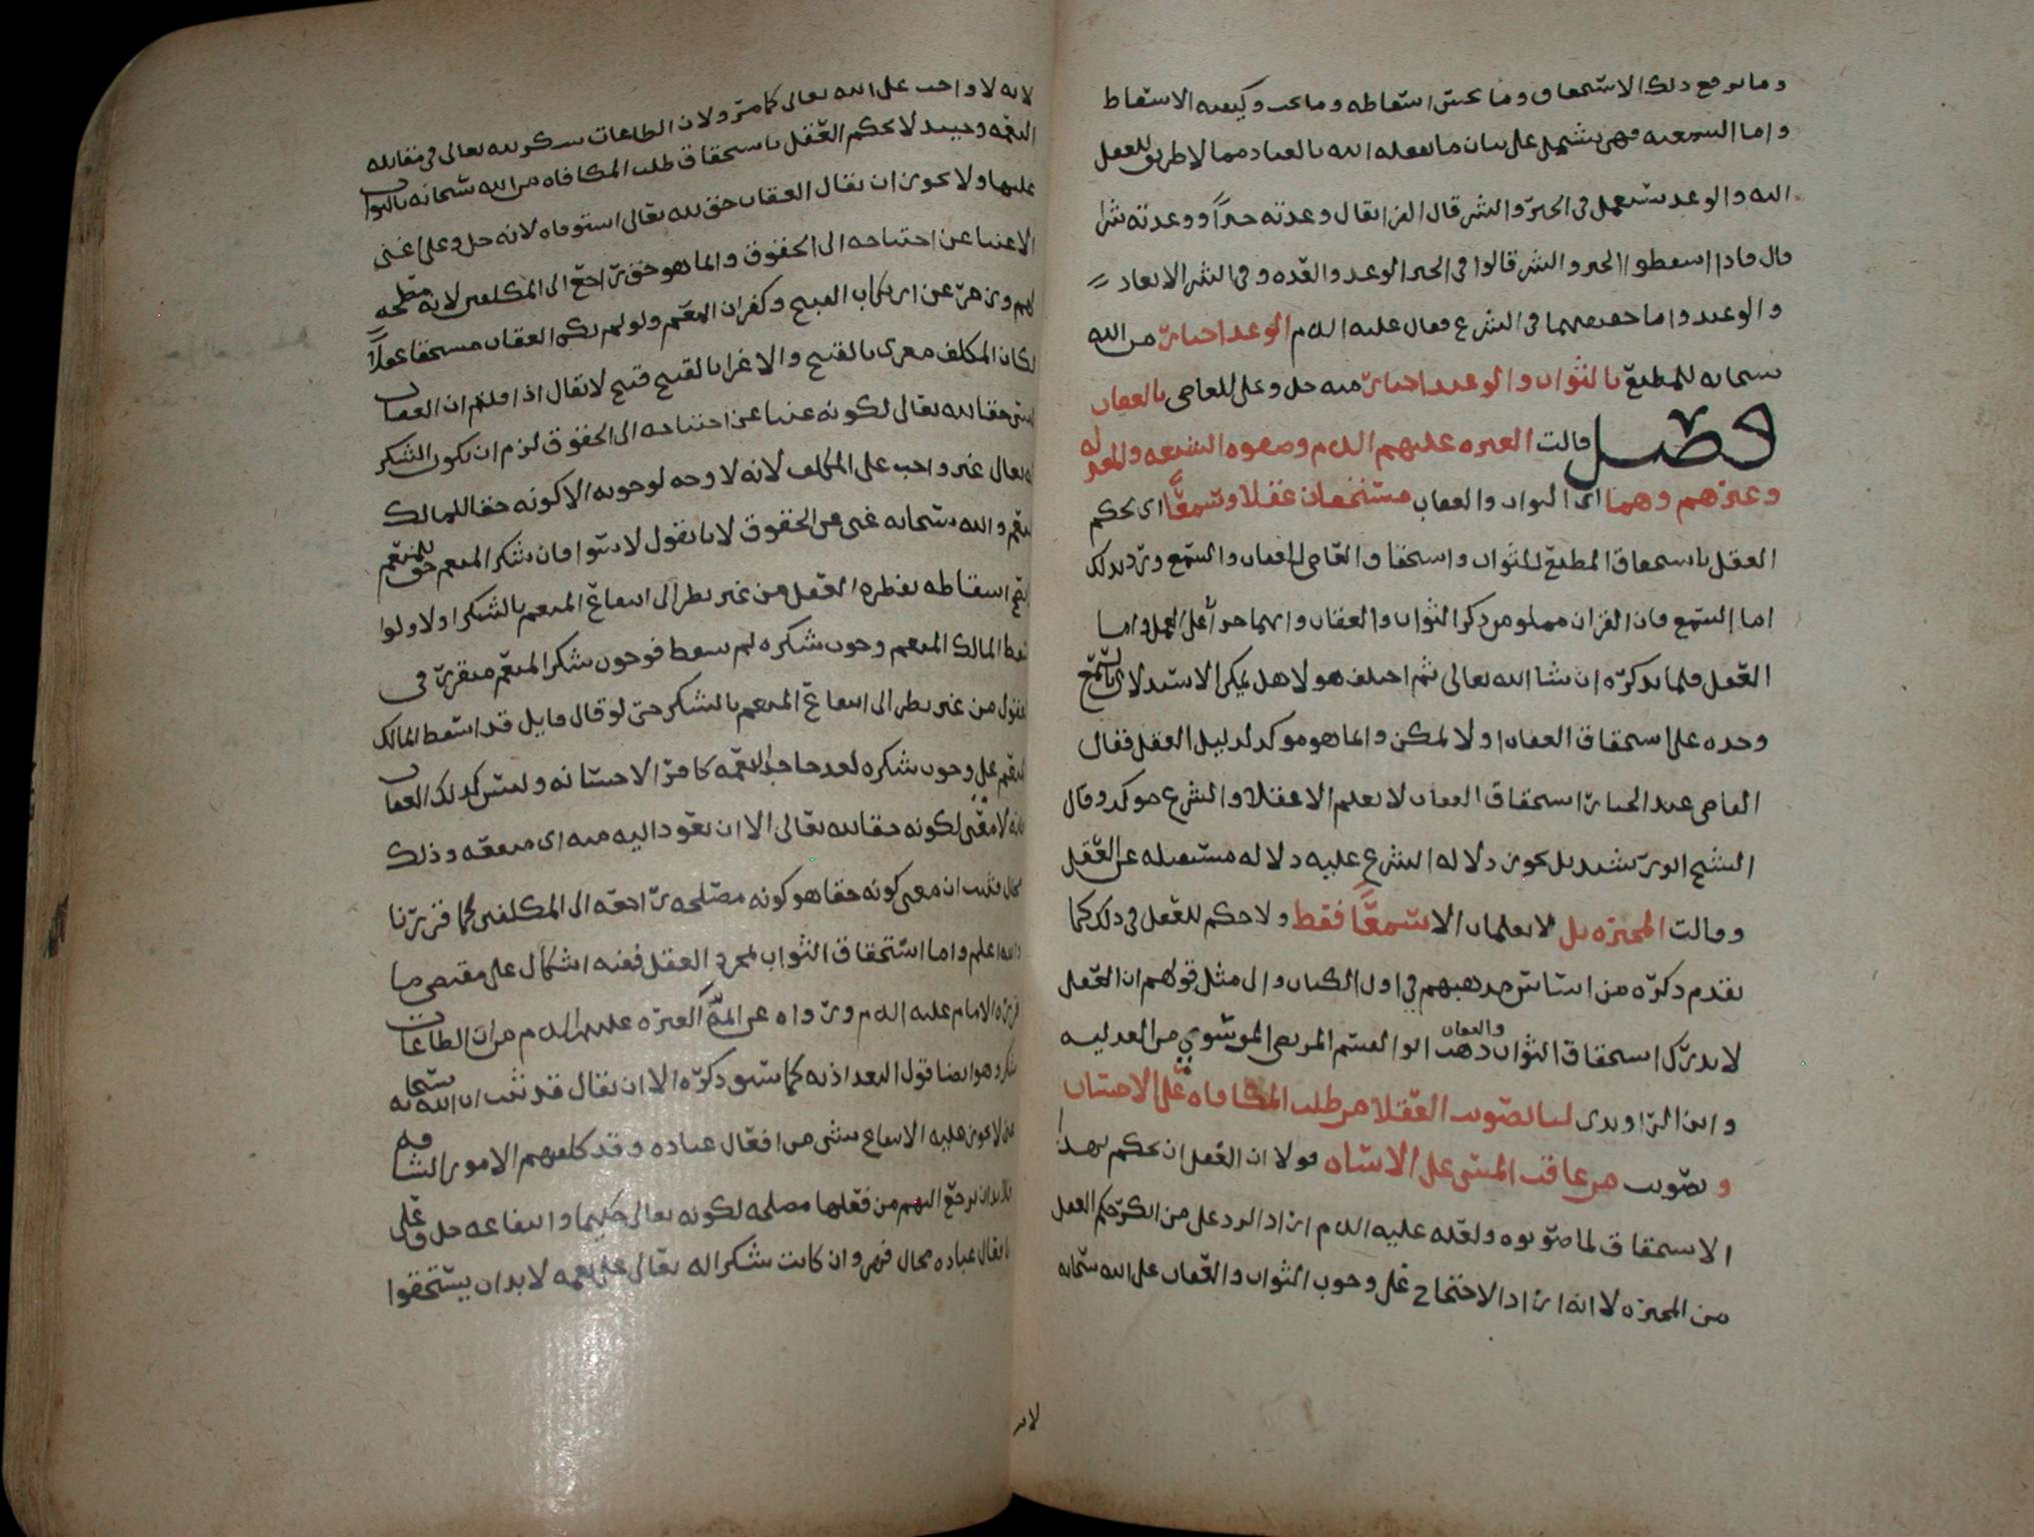 وما يرفع ذلك الاستحقاق وما يحسن اسقاطه وما يجب وكيفيه الاسقاط
واما السمعيه فهي يشتمل على بيان ما يفعله الله بالعباد مما لا طريق للعقل
اليه والوعد يستعمل في الخير والشر قال الفرا يقال وعدته خيرًا ووعدته شرا
قال فاذا اسقطوا الخير والشر قالوا في الخير الوعد والعده وفي الشر الايعاد
والوعيد واما حقيقتهما في الشرع فقال عليه السلام الوعد اخبار من الله
سبحانه للمطيع بالثواب والوعيد اخبار منه جل وعلى للعاصي بالعقاب
فصل قالت العتره عليهم السلام وصفوه الشيعه والمعتزله
وغيرهم وهما اي الثواب والعقاب مستحقان عقلا وسمعًا اي يحكم
العقل باستحقاق المطيع للثواب واستحقاق العاصي للعقاب والسمع ورد بذلك
اما السمع فان القران مملو من ذكر الثواب والعقاب وانهما جزآ على العمل واما
العقل فلما نذكره ان شا الله تعالى ثم اختلف هولا هل يمكن الاستدلال بالسمع
وحده على استحقاق العقاب اولا يمكن وانما هو موكد لدليل العقل فقال
القاضي عبد الجبار استحقاق العقاب لا يعلم الا عقلا والشرع موكد وقال
الشيخ ابو رشيد بل يجوز دلاله الشرع عليه دلاله مستقله عن العقل
وقالت المجبره بل لا يعلمان الا سمعًا فقط ولا حكم للعقل في ذلك كما
تقدم ذكره من اساس مذهبهم في اول الكتاب والى مثل قولهم ان العقل
لا يدرك استحقاق الثواب والعقاب ذهب ابو القسم المرتضى الموسوي من العدليه
وابن الراوندي لنا تصويب العقلا من طلب المكافاه على الاحسان
وتصويب من عاقب المسي على الاساه فولا ان العقل ان يحكم بهذا
الاستحقاق لما صوبوه ولعله عليه السلام اراد الرد على من انكر حكم العقل
من المجبره لا انه اراد الاحتجاج على وجوب الثواب والعقاب على الله سبحانه
لانه لا واجب على الله تعالى كما مر ولان الطاعات شكر لله تعالى في مقابله
النعمه وحينئذ لا يحكم العقل باستحقاق طلب المكافاه من الله سبحانه بالثواب
عليها ولا يجوز ان يقال العقاب حق لله تعالى استوفاه لانه جل وعلى اغنى
الاغنيا عن احتياجه الى الحقوق وانما هو حق راجع الى المكلفين لانه مصلحه
لهم وزجر عن ارتكاب القبيح وكفران المنعم ولو لم يكن العقاب مستحقا عقلًا
لكان المكلف مغرى بالقبيح والاغرا بالقبيح قبيح لا يقال اذا قلتم ان العقاب
ليس حقا لله تعالى لكونه غنيا عن احتياجه الى الحقوق لزم ان يكون الشكر
له تعالى غير واجب على المكلف لانه لا وجه لوجوبه الا كونه حقا للمالك
المنعم والله سبحانه غني عن الحقوق لانا نقول لا سوا فان شكر المنعم حق للمنعم
يقبح اسقاطه بفطره العقل من غير نظر الى انتفاع المنعم بالشكر اولا ولو
اسقط المالك المنعم وجوب شكره لم يسقط فوجوب شكر المنعم متقرر في
العقول من غير نظر الى انتفاع المنعم بالشكر حتى لو قال قايل قد اسقط المالك
المنعم على وجوب شكره لعد جاحد النعمه كافر الاحسانه وليس كذلك العقاب
فانه لا معنى لكونه حقا لله تعالى الا ان يعود اليه منه اي منفعه وذلك
محال فثبت ان معنى كونه حقا هو كونه مصلحه راجعه الى المكلفين كما قررنا
والله اعلم واما استحقاق الثواب بمجرد العقل ففيه اشكال على مقتضى ما
قرره الامام عليه السلام ورواه عن ايمه العتره عليهم السلام من ان الطاعات
شكر وهو ايضا قول البغداذيه كما سبق ذكره الا ان يقال قد ثبت ان الله سبحانه
ممن لا يجوز عليه الانتفاع بشي من افعال عباده وقد كلفهم الامور الشاقه
فلا بد ان يرجع اليهم من فعلها مصلحه لكونه تعالى حكيما وانتفاعه جل وعلى
بافعال عباده محال فهي وان كانت شكرا له تعالى على نعمه لا بد ان يستحقوا
لا بد